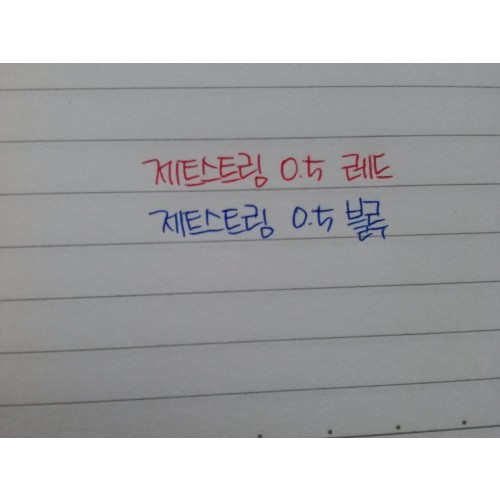 제트스트림 0.5 레드
제트스트림 0.5 블루